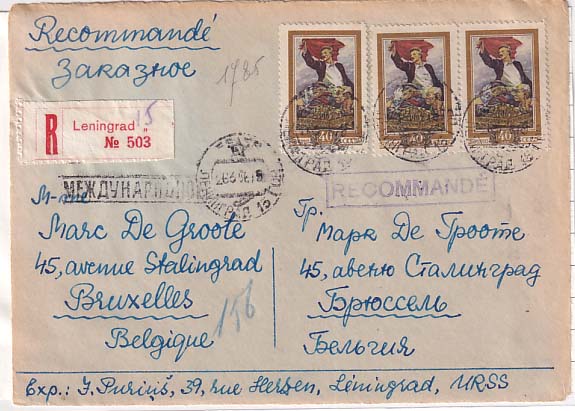 Recommandé
Заказное
1785
R Leningrad „15"
№ 503
40
40
40
МЕЖДУНАРОДНОЕ
RECOMMANDÉ
M-
Marc De Groote
45, avenue Stalingrad
Bruxelles
Belgique
Гр.
Марк Де Гроoте
45, авеню Сталинград
Брюссель
Бельгия
156
Exp.: J. Puriņš, 39, rue Herzen, Léningrad, URSS